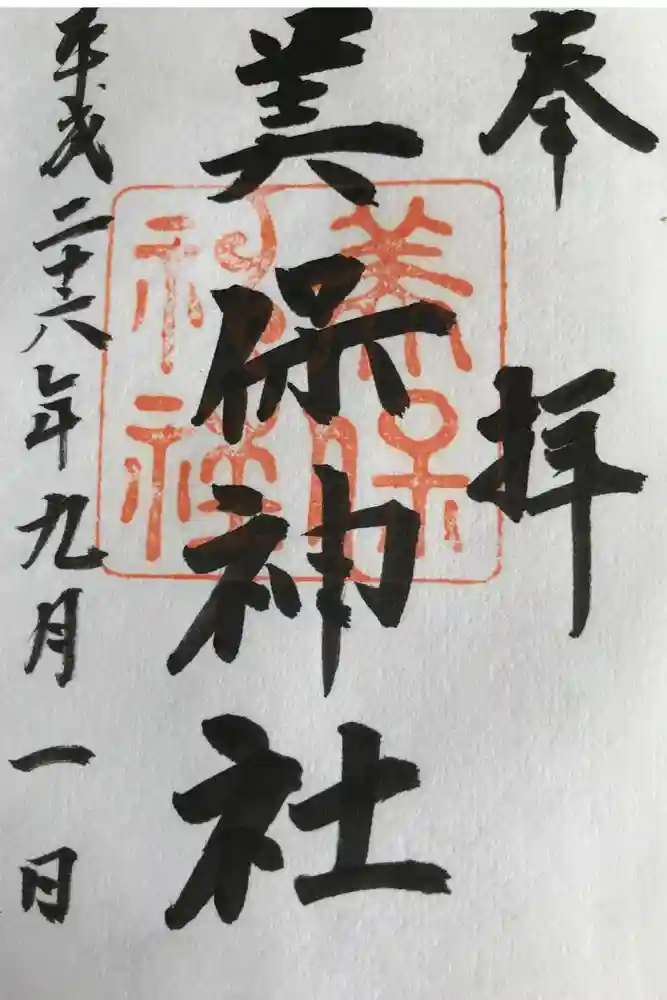 奉拝
美保神社
美保
神社
平成二十六年九月一日